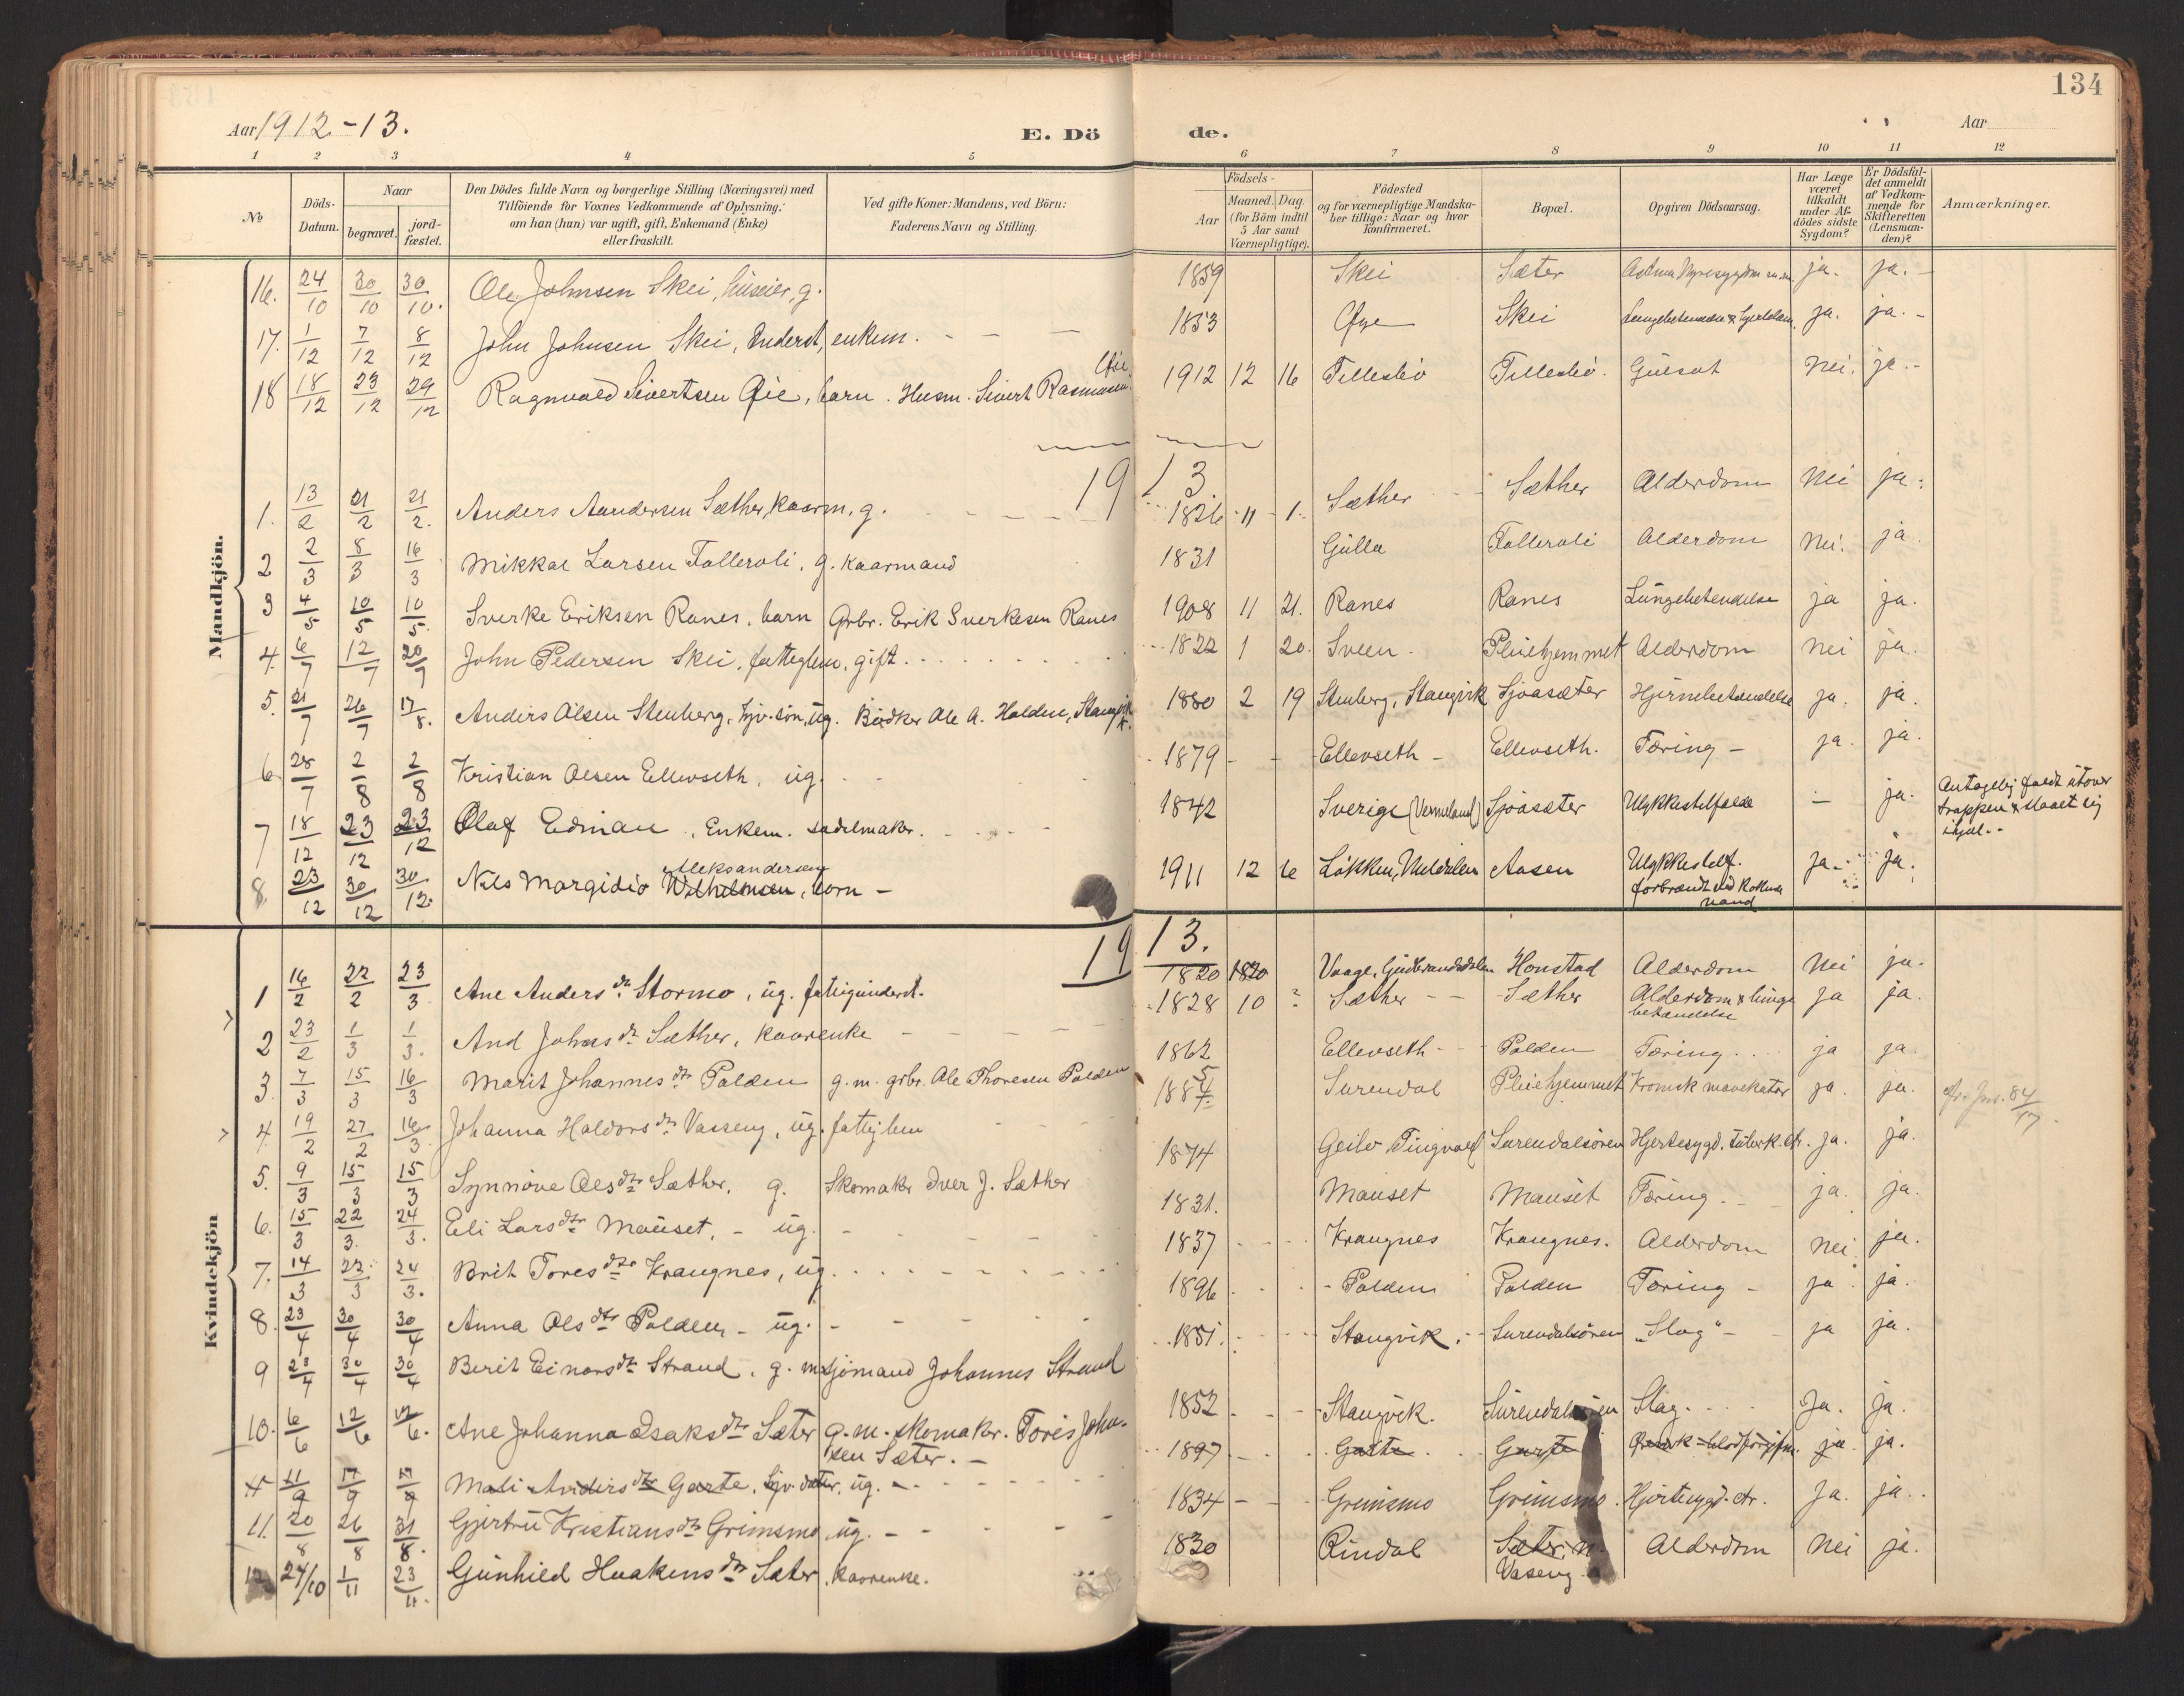 134
Aar 1912-13. E. Dö de. Aar
1 2 3 4 5 6 7 8 9 10 11 12
No
Döds-Datum.
Naar
begravet.
jordfæstet.
Den Dödes fulde Navn og borgerlige Stilling (Næringsvei) med
Tilföiende for Voxnes Vedkommende af Oplysning:
om han (hun) var ugift, gift, Enkemand (Enke)
eller fraskilt.
Ved gifte Koner: Mandens, ved Börn:
Faderens Navn og Stilling.
Födsels-
Aar
Maaned. Dag.
(for Börn indtil
5 Aar samt
Værnepligtige).
Födested
og for værnepligtige Mandska-
ber tillige: Naar og hvor
konfirmeret.
Bopæl.
Opgiven Dödsaarsag.
Har Læge
været
tilkaldt
under Af-
dödes sidste
Sygdom?
Er Dödsfal-
det anmeldt
af Vedkom-
mende for
Skifteretten
(Lensman-
den)?
Anmærkninger.
Mandkjön.
16. 24/10 30/10 30/10. Ole Johnsen Skei, huseier, g. 1859 Skei Sæter ja. ja. -
17. 1/12 7/12 8/12 John Johnsen Skei, Inderst, enkem. - - - 1853 Øye Skei ja. ja. -
18 18/12 23/12 29/12 Ragnvald Sivertsen Øie, barn. Husm. Sivert Rasmussen Øie 1912 12 16 Tellesbö Tellesbö. Gulsot Nei. ja. -
1913
1. 13/2 21/2 21/2. Anders Aandersen Sæther, kaarm, g. 1826 11 1. Sæther Sæther Alderdom Nei ja.
2 2/3 8/3 16/3 Mikkal Larsen Talleroli, g. kaarmand 1831 Gulla Talleroli Alderdom Nei. ja
3 4/5 10/5 10/5. Sverke Eriksen Ranes, barn Grbr. Erik Sverkesen Ranes 1908 11 21. Ranes Ranes Lungebetendelse ja ja.
4. 6/7 12/7 20/9 John Pedersen Skei, fatteglem, gift. 1822 1 20. Sveen. Pleiehjemmet Alderdom Nei ja.
5. 21/7 26/7 17/8. Anders Olsen Stenberg, Gjv. sön, ug. Bödker Ole A. Halden, Stangvik. 1880 2 19 Stenberg, Stangvik Sjøasæter Hjernebetendelse ja. ja.
6. 28/7 2/8 2/8 Kristian Olsen Ellevseth, ug. 1879 - - Ellevseth - Ellevseth. Tæring - ja. ja.
7 18/12 23/12 23/12 Olaf Edman, Enkem. sadelmaker. 1842 Sverige (Vermeland) Sjøasæter Ulykkestilfælde - ja. Antagelig faldt utover
trappen & slaaet sig
ihjel. -
8. 23/12 30/12 30/12. Nils Margido Wilhelmsen, barn - Aleksandersen 1911 12 6 Løkken, Meldalen Aasen Ulykkestilf.
forbrændt ved kokende
vand ja. ja.
Kvindekjön
1913.
1 16/2 22/2 23/3 Ane Andersdtr. Stormo, ug. fattigunderst. 1820 1820 Vaage, Gudbrandsdalen Honstad Alderdom Nei ja.
2 23/2 1/3 1/3. And Johnsdtr Sæther, kaarenke 1828 10 ? Sæther - - Sæther Alderdom & lunge
betændelse ja ja.
3. 7/3 15/3 16/3 Marit Johannesdtr Polden g. m. grbr. Ole Thoresen Polden 1862 Ellevseth - Polden Tæring. ja ja.
4. 19/2 27/2 16/3 Johanna Haldorsdtr Vasseng, ug. fattiglem 1885 Surendal Pleiehjemmet Kronisk mavekatar ja. ja. cfr. Jnr. 84/17.
5. 9/3 15/3 15/3 Synnöve Olsdtr Sæther, g. Skomaker Iver J. Sæther 1874 Geilo Tingvold Surendalsören Hjertesygd. Tuberk. etc. ja. ja.
6. 15/3 22/3. 24/3. Eli Larsdtr Mauset, - ug. 1831. Mauset Mauset Tæring. - ja. ja.
7. 14/3 23/3 24/3. Brit Toresdtr Krangnes, ug. 1837 Krangnes Krangnes. Alderdom Nei. ja.
8. 23/4 30/4 30/4 Anna Olsdtr Polden - ug. 1896 - Polden Polden Tæring - ja ja.
9 23/4 30/4 30/4 Berit Einarsdtr Strand, g. m. sjømand Johannes Strand 1851. Stangvik. - Surendalsören "Slag" - ja ja.
10. 6/6 12/6 17/6. Ane Johanna Isaksdtr Sæter g. m. skomaker. Tores John-
sen Sæter. - 1852 Stangvik. Surendalsören Slag. Ja. ja.
11/9 17/9 17/9 Mali Andersdtr Garte, Gjv. datter, ug. - 1897 Garte Garte ja. ja.
11. 20/8 26/8 31/8. Gjertru Kristiansdtr Grimsmo, ug. - 1834 - Grimsmo Grimsmo. Hjertesygd. etc. Ja. ja..
12. 24/10 1/11 23/11. Gunhild Haakensdtr Sæter, kaarenke. 1830 Rindal Sæter, n.
Vaseng Alderdom Nei ja.